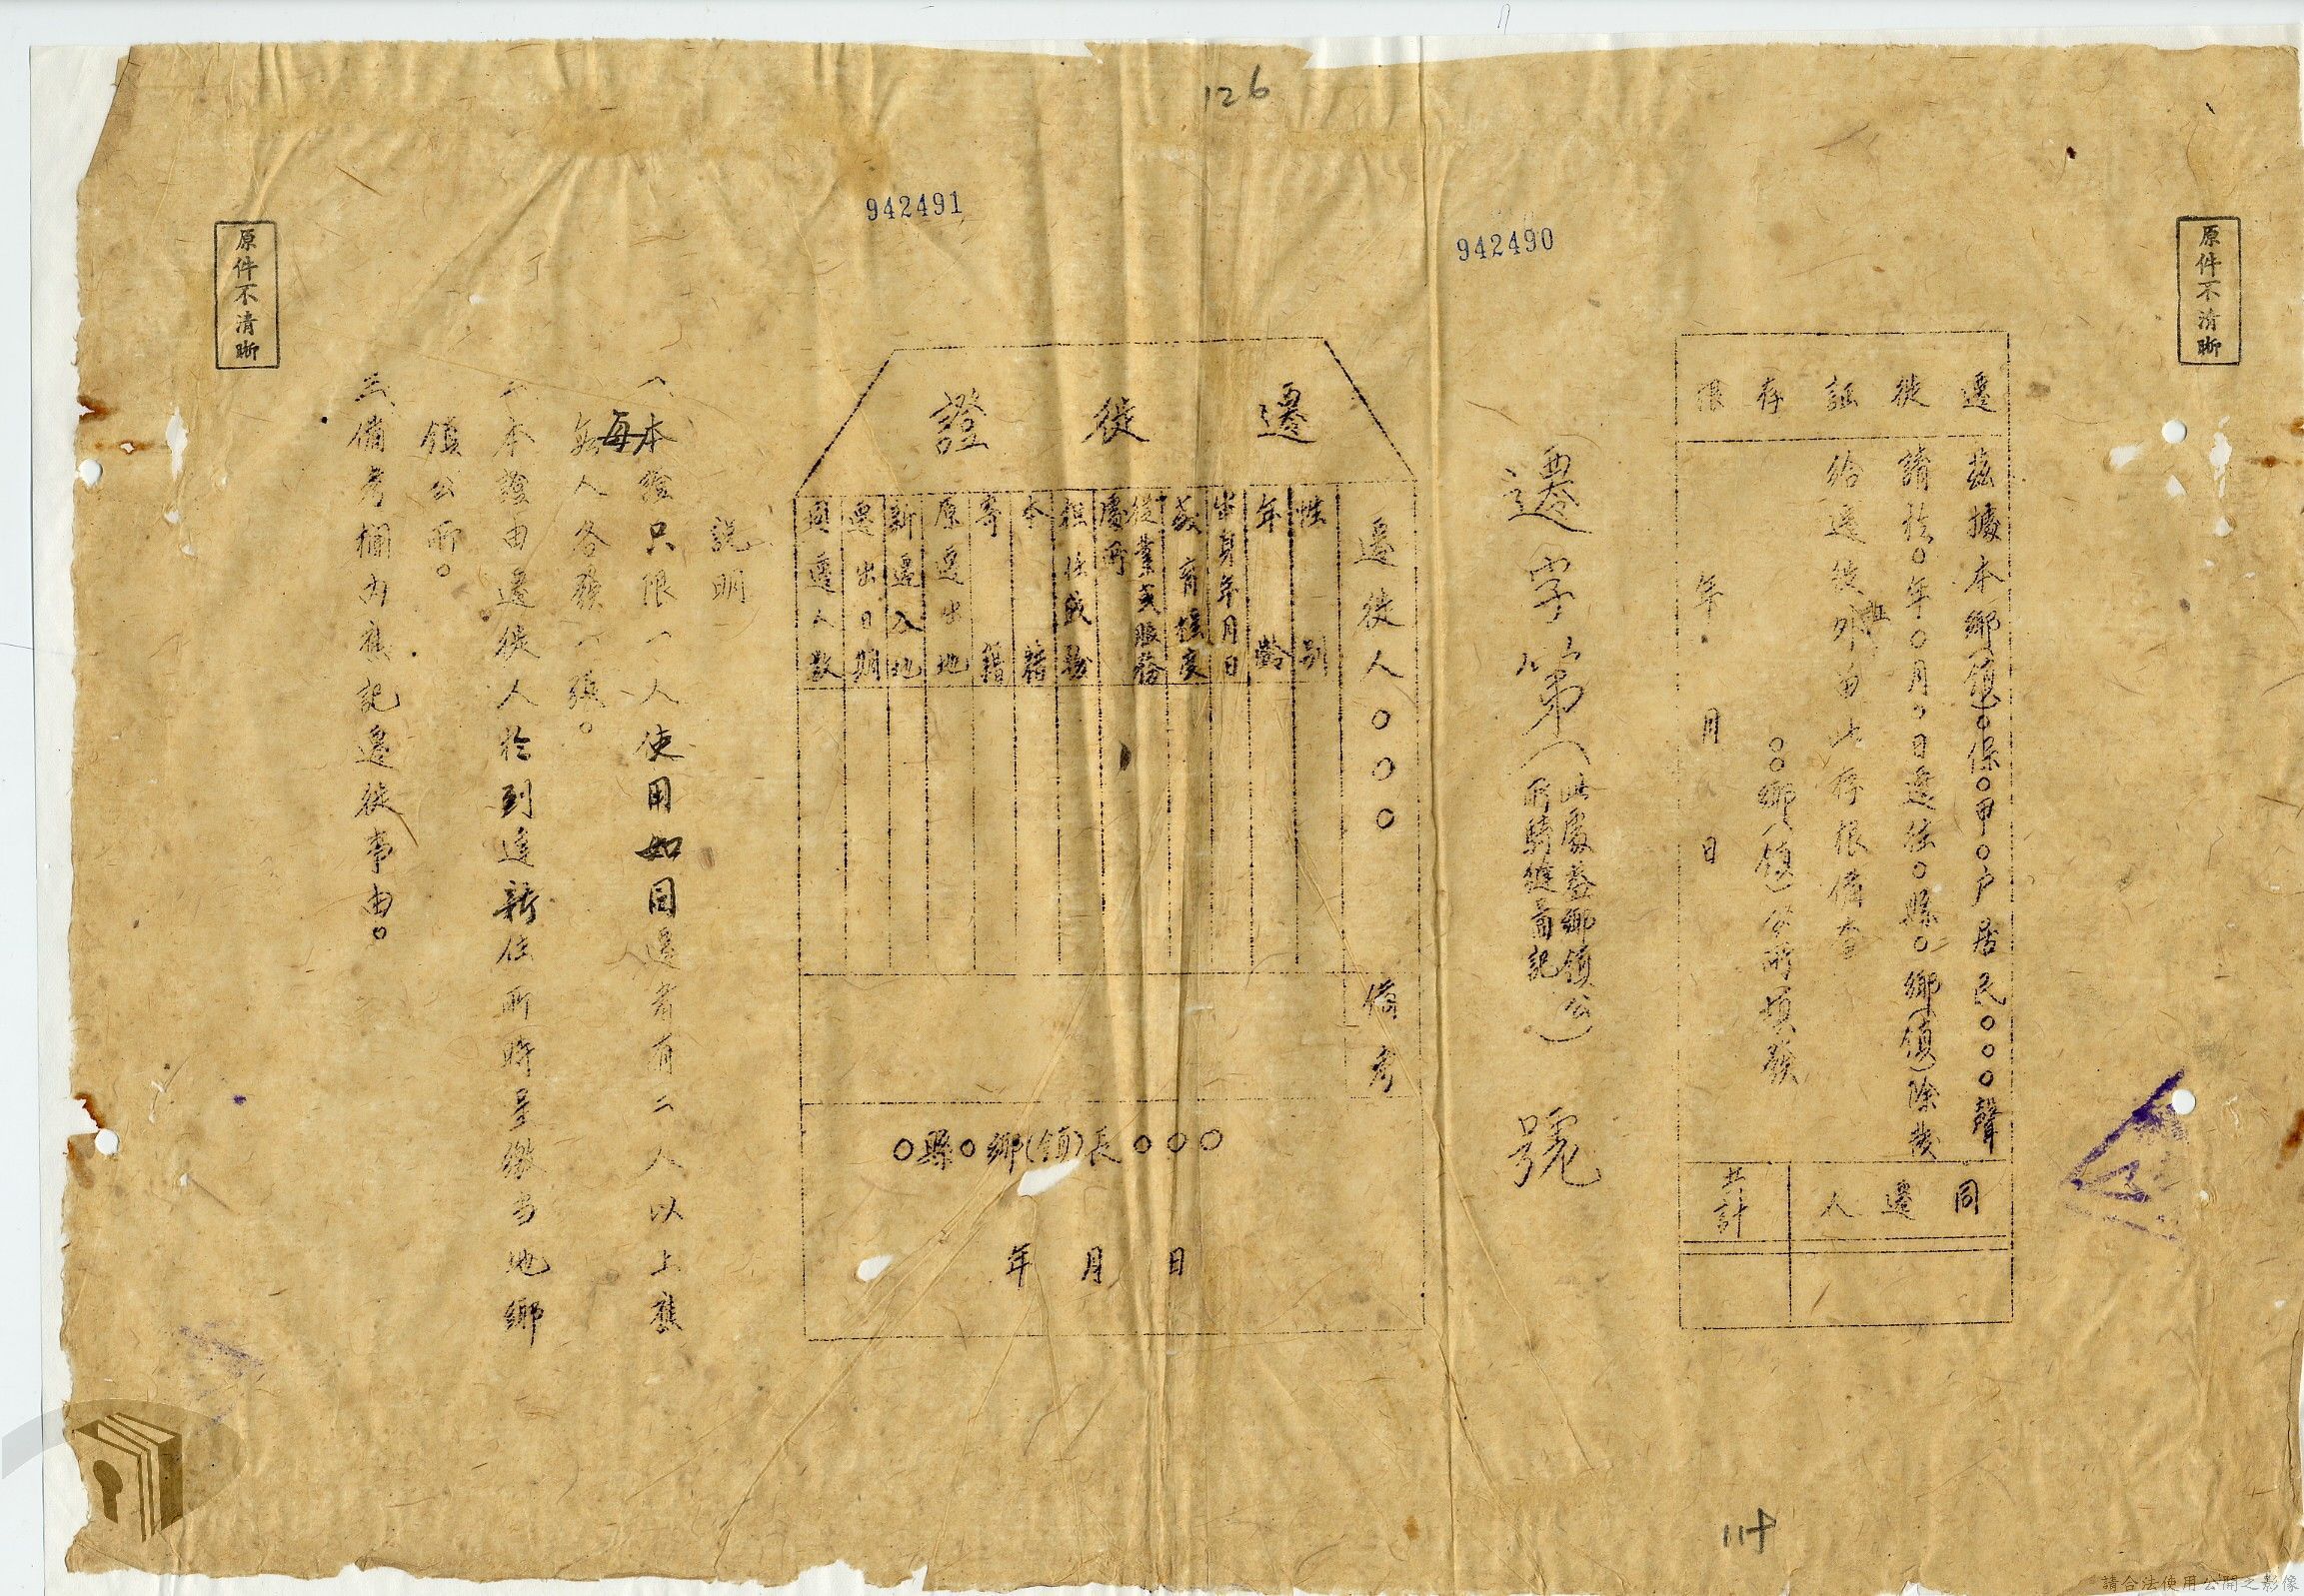 126
942491
942490
原件不清晰
原件不清晰
遷徙証存根
茲據本鄉(鎮)○保○甲○戶居民○○○聲
請於○年○月○日遷往○縣○鄉(鎮)除發
給遷徙證外留此存根備查
○○鄉(鎮)公所填發
年 月 日
同遷人
共計
遷字第
(此處蓋鄉鎮公
所騎縫圖記)
號
遷徙證
遷徙人○○○
性別
年齡
出身年月日
教育程度
從業或服務
處所
担任職務
本籍
寄籍
原遷出地
新遷入地
遷出日期
同遷人數
備考
○縣○鄉(鎮)長○○○
年 月 日
說明
一、本證只限一人使用如同遷者有二人以上應
每人各發一張。
二、本證由遷徙人於到達新住所時呈繳當地鄉
鎮公所。
三、備考欄內應記遷徙事由。
118
請合法使用公開之影像